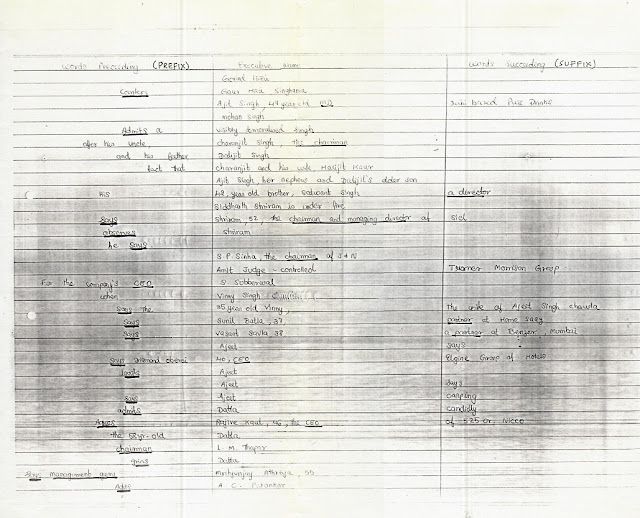 Words Preceding (PREFIX) Executive name Words succeeding (SUFFIX)
Govind
Counters Gaur Hari Singhania
Ajit Singh, 49 year old based Pure Drinks
Mohan Singh
Admits a visibly Singh
after his uncle charanjit Singh, the chairman
and his father Daljit Singh
fact that charanjit and his wife Harjit Kaur
Ajit Singh, her nephew and Daljit's elder son
His 48, year old brother, Satwant Singh a director
Siddharth Shriram is under fire
Says Shriram 52, the chairman and managing director of Siel
observes Shriram
he says
S P Sinha the chairman of J + N
Amit Judge - controlled Turner Morrison Group
For the company's CEO S Sabberwal
when Vinny Singh
Says the 35 year old Vinny, The wife of Ajeet Singh chawla
Says Sunil Batla, 37 partner at Home
Says Vasant Savla 38 a partner at Benzer, Mumbai
Ajeet says
Says oberoi 40, CEO Elgine Group of Hotels
Ajeet
Ajeet says
Says Ajeet
admits Datta candidly
Agrees Rajive Kaul, 46, the CEO of 525 cr. Nicco
the 58 yr-old Datta
chairman L. M. Thapar
grins Datta
Says Management guru Mrityunjay Athreya, 55
Adds A C.